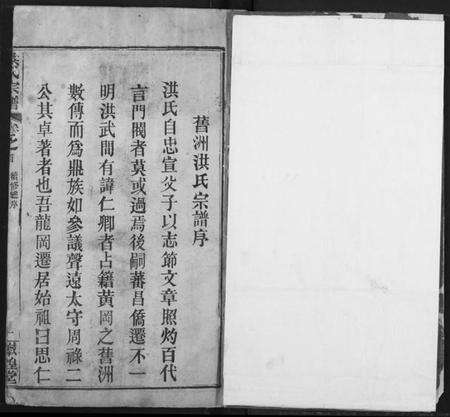 舊洲洪氏宗譜序
洪氏自忠宣父子以志節文章照灼百代
言門閥者莫或過焉後嗣蕃昌僑遷不一
明洪武間有諱仁卿者占籍黃岡之舊洲
數傳而為鼎族如參議聲遠太守周祿二
公其卓著者也吾龍岡遷居始祖曰思仁
洪氏宗譜
卷之首
敦煌堂